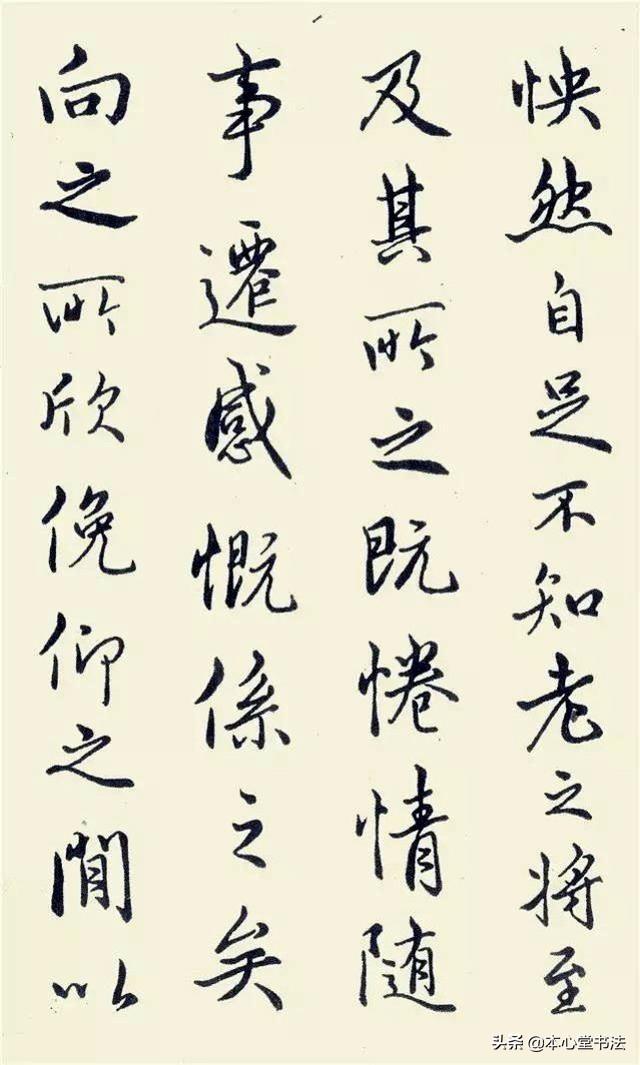 怏然自足不知老之将至
及其所之既惓情随
事遷感慨係之矣
向之所欣俛仰之間以
头条@本心堂书法